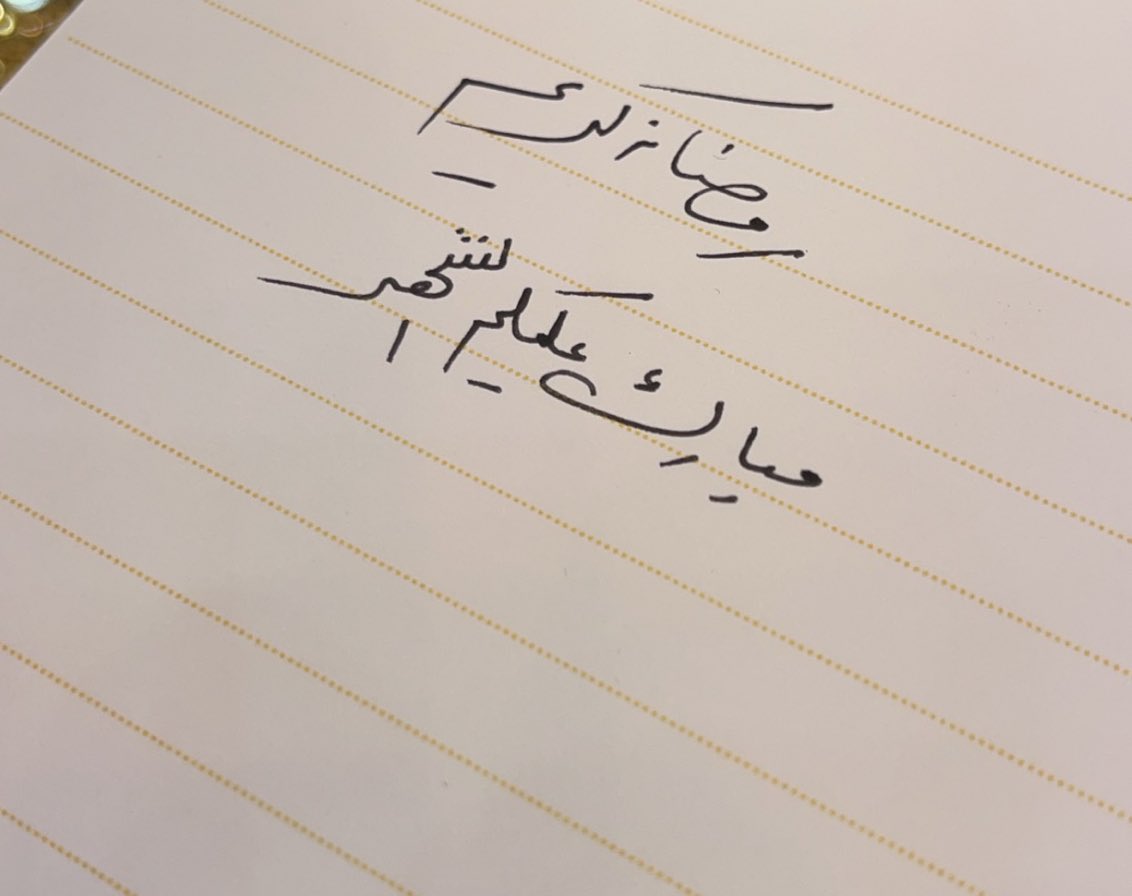 رمضان كريم
مبارك عليكم الشهر